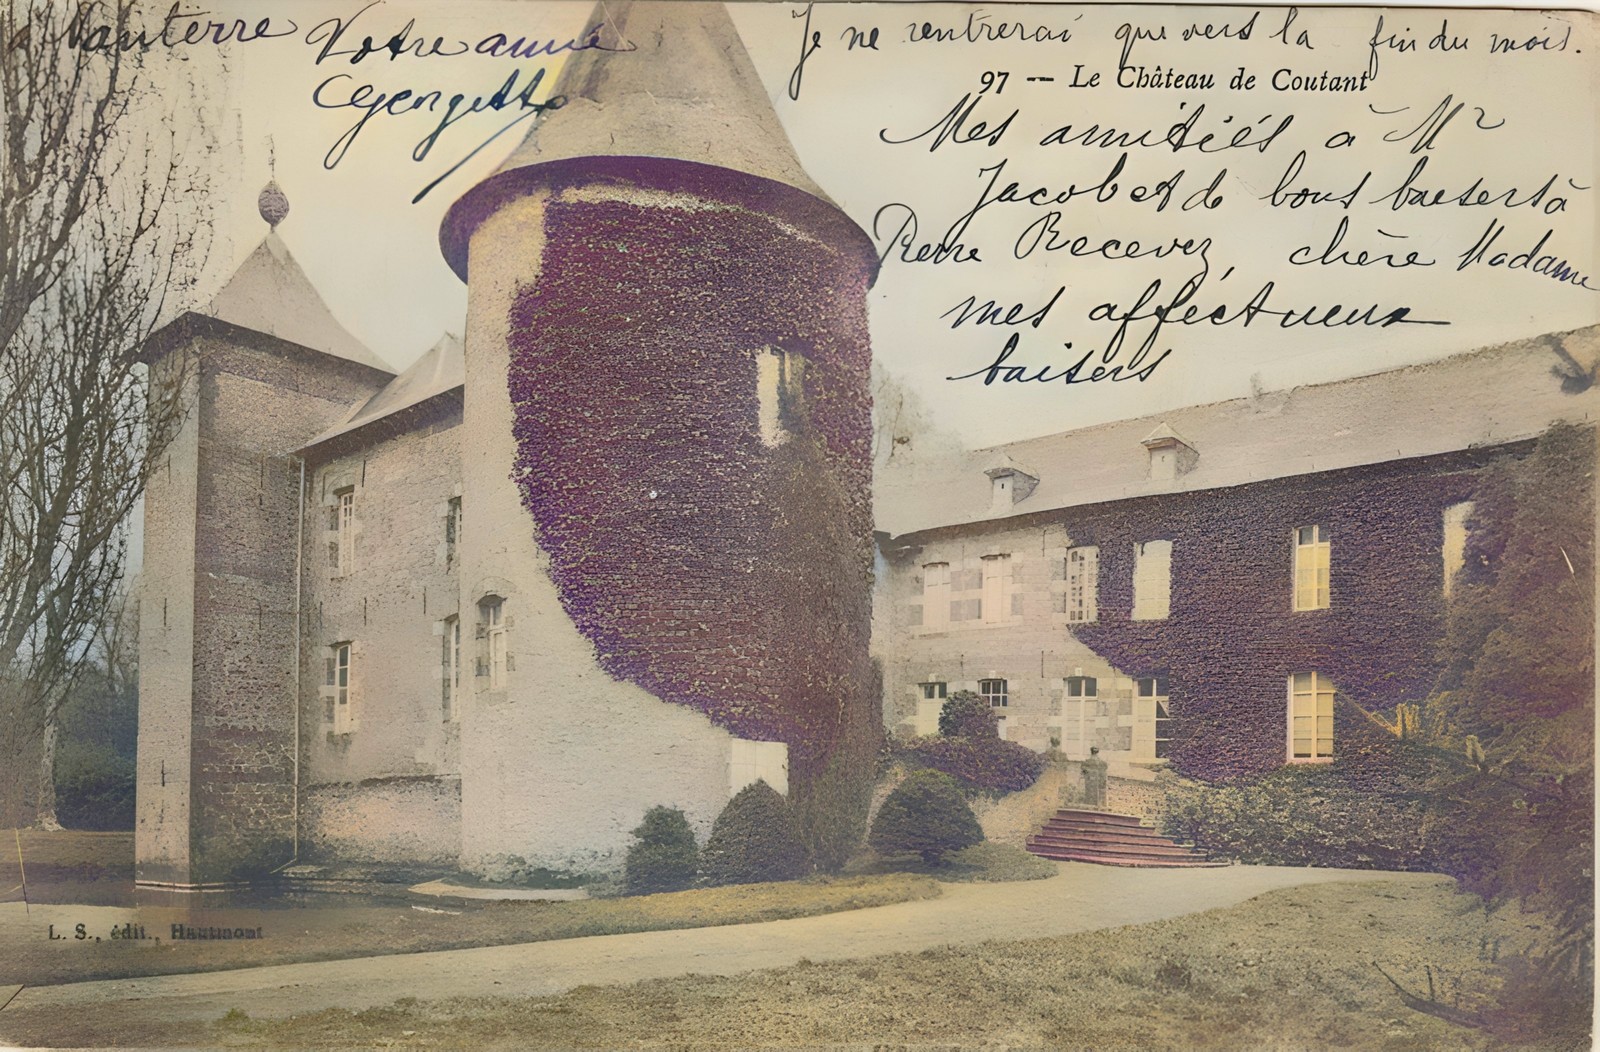 Je ne rentrerai que vers la fin du mois.
à Nanterre Votre amie
Georgette
97 — Le Château de Coutant
Mes amitiés à Mr
Jacob et de bons baisers à
Pierre Recevez, chère Madame
mes affectueux
baisers
L. S., édit., Hautmont